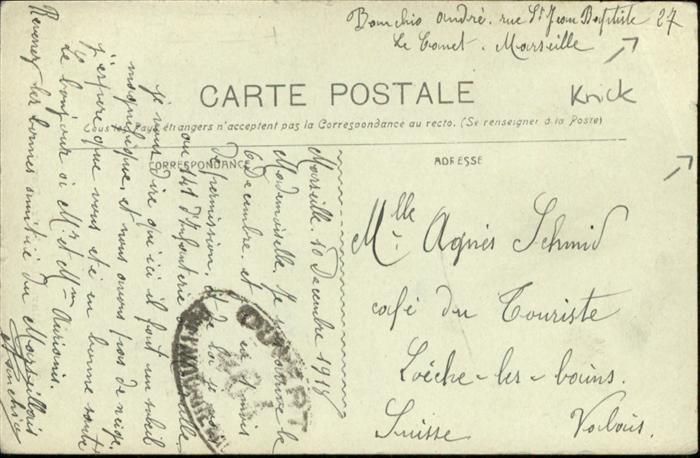 Bouchio André. rue St Jean Baptiste 27
Le Canet. Marseille
Krick
CARTE POSTALE
Tous les Pays étrangers n'acceptent pas la Correspondance au recto. (Se renseigner à la Poste)
CORRESPONDANCE
ADRESSE
Marseille. 10 Decembre 1918
Mademoiselle. Je
6 Decembre. et 1 mois
de permission, et de la je
au 141 d'Infanterie
je vous dire que ici il fait un soleil
magnifique, et nous avons pas de neige.
j'espere que vous etes en bonne santé
Le bonjour à Mr et Mme
Recevez les bonnes amitiés du Marseillais
Bouchio
OUVERT
Mlle Agnès Schmid
café du Touriste
Loéche-les-bains.
Suisse Valais.